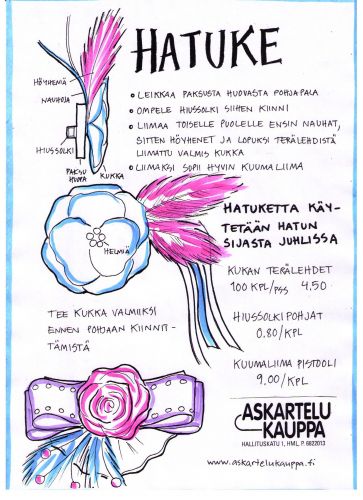 HATUKE
HÖYHENIÄ
NAUHOJA
HIUSSOLKI
PAKSU
HUOPA
KUKKA
• LEIKKAA PAKSUSTA HUOVASTA POHJAPALA
• OMPELE HIUSSOLKI SIIHEN KIINNI
• LIIMAA TOISELLE PUOLELLE ENSIN NAUHAT,
SITTEN HÖYHENET JA LOPUKSI TERÄLEHDISTÄ
LIIMATTU VALMIS KUKKA
• LIIMAKSI SOPII HYVIN KUUMALIIMA
HELMIÄ
HATUKETTA KÄY-
TETÄÄN HATUN
SIJASTA JUHLISSA
KUKAN TERÄLEHDET
100 KPL/PSS 4.50
HIUSSOLKIPOHJAT
0.80/KPL
KUUMALIIMA PISTOOLI
9,00/KPL
TEE KUKKA VALMIIKSI
ENNEN POHJAAN KIINNIT-
TÄMISTÄ
ASKARTELU
KAUPPA
HALLITUSKATU 1, HML, P. 6822013
www.askartelukauppa.fi